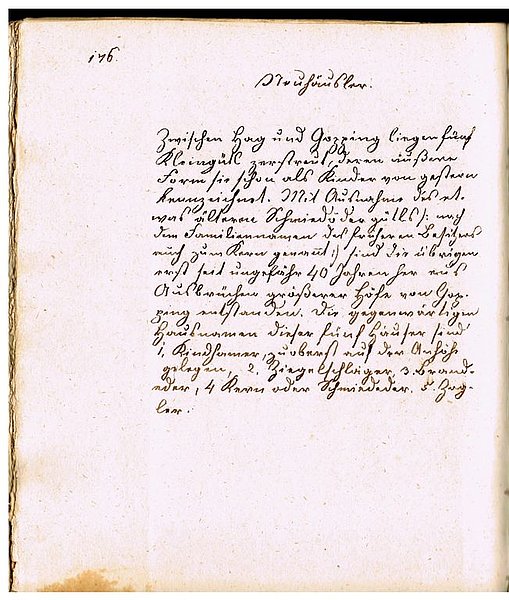 176.
Neuhäusler.
Zwischen Hag und Gopping liegen fünf
Kleingütl zerstreut, deren äußere
Form sie schon als Kinder von gestern
kennzeichnet. Mit Ausnahme des et-
was älteren Schmiedödergütls /: nach
dem Familiennamen des früheren Besitzers
auch zum Kern genannt :/ sind die übrigen
erst seit ungefähr 40 Jahren her aus
Ausbrüchen größerer Höfe von Gop-
ping entstanden. Die gegenwärtigen
Hausnamen dieser fünf Häuser sind
1, Kindhamer, zuoberst auf der Anhöhe
gelegen, 2. Ziegelschlager, 3. Brand-
eder, 4 Kern oder Schmiededer. 5. Zog-
ler.